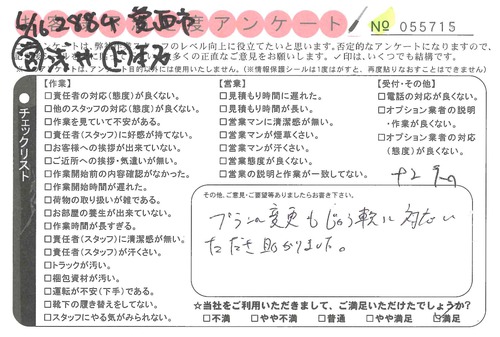 アンケート
№ 055715
6/16 2884 箕面市
本アンケートは、弊社サービスのレベル向上に役立てたいと思います。否定的なアンケートになりますので、
多くの正直なご意見をお願いします。✓印は、いくつでも結構です。
アンケート目的以外には使用いたしません。(※情報保護シールは1度はがすと、再度貼りなおすことはできません)
チェックリスト
【作業】
□責任者の対応(態度)が良くない。
□他のスタッフの対応(態度)が良くない。
□作業を見ていて不安がある。
□責任者(スタッフ)に好感が持てない。
□お客様への挨拶が出来ていない。
□ご近所への挨拶・気遣いが無い。
□作業開始前の内容確認がなかった。
□作業開始時間が遅れた。
□荷物の取り扱いが雑である。
□お部屋の養生が出来ていない。
□作業時間が長すぎる。
□責任者(スタッフ)に清潔感が無い。
□責任者(スタッフ)が汗くさい。
□トラックが汚い。
□梱包資材が汚い。
□運転が不安(下手)である。
□靴下の履き替えをしてない。
□スタッフにやる気がみられない。
【営業】
□見積もり時間に遅れた。
□見積もり時間が長い。
□営業マンに清潔感が無い。
□営業マンが煙草くさい。
□営業マンが汗くさい。
□営業態度が良くない。
□営業の説明と作業が一致してない。
【受付・その他】
□電話の対応が良くない。
□オプション業者の説明
・作業が良くない。
□オプション業者の対応
(態度)が良くない。
その他、ご意見・ご要望等ありましたらお書き下さい。
プランの変更もじゅう軟に対応い
ただき助かりました。
☆当社をご利用いただきまして、ご満足いただけたでしょうか?
□不満 □やや不満 □普通 □やや満足 ☑満足